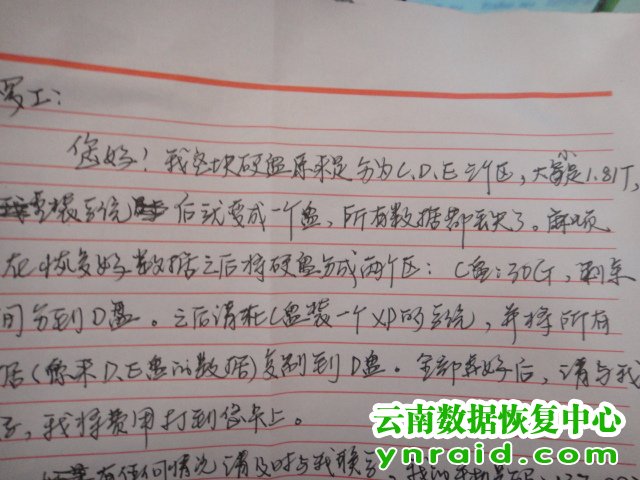 罗工:
您好!我这块硬盘原来是分为C、D、E三个区,大小是1.81T,
重装系统后就变成一个盘,所有数据都丢失了。麻烦
在恢复好数据之后将硬盘分成两个区:C盘:50G,剩余
间分到D盘。之后请在C盘装一个XP的系统,并将所有
据(原来D、E盘的数据)复制到D盘。全部弄好后,请与我
系,我将费用打到您卡上。
有任何情况请及时与我联系,我的手机是
云南数据恢复中心
ynraid.com